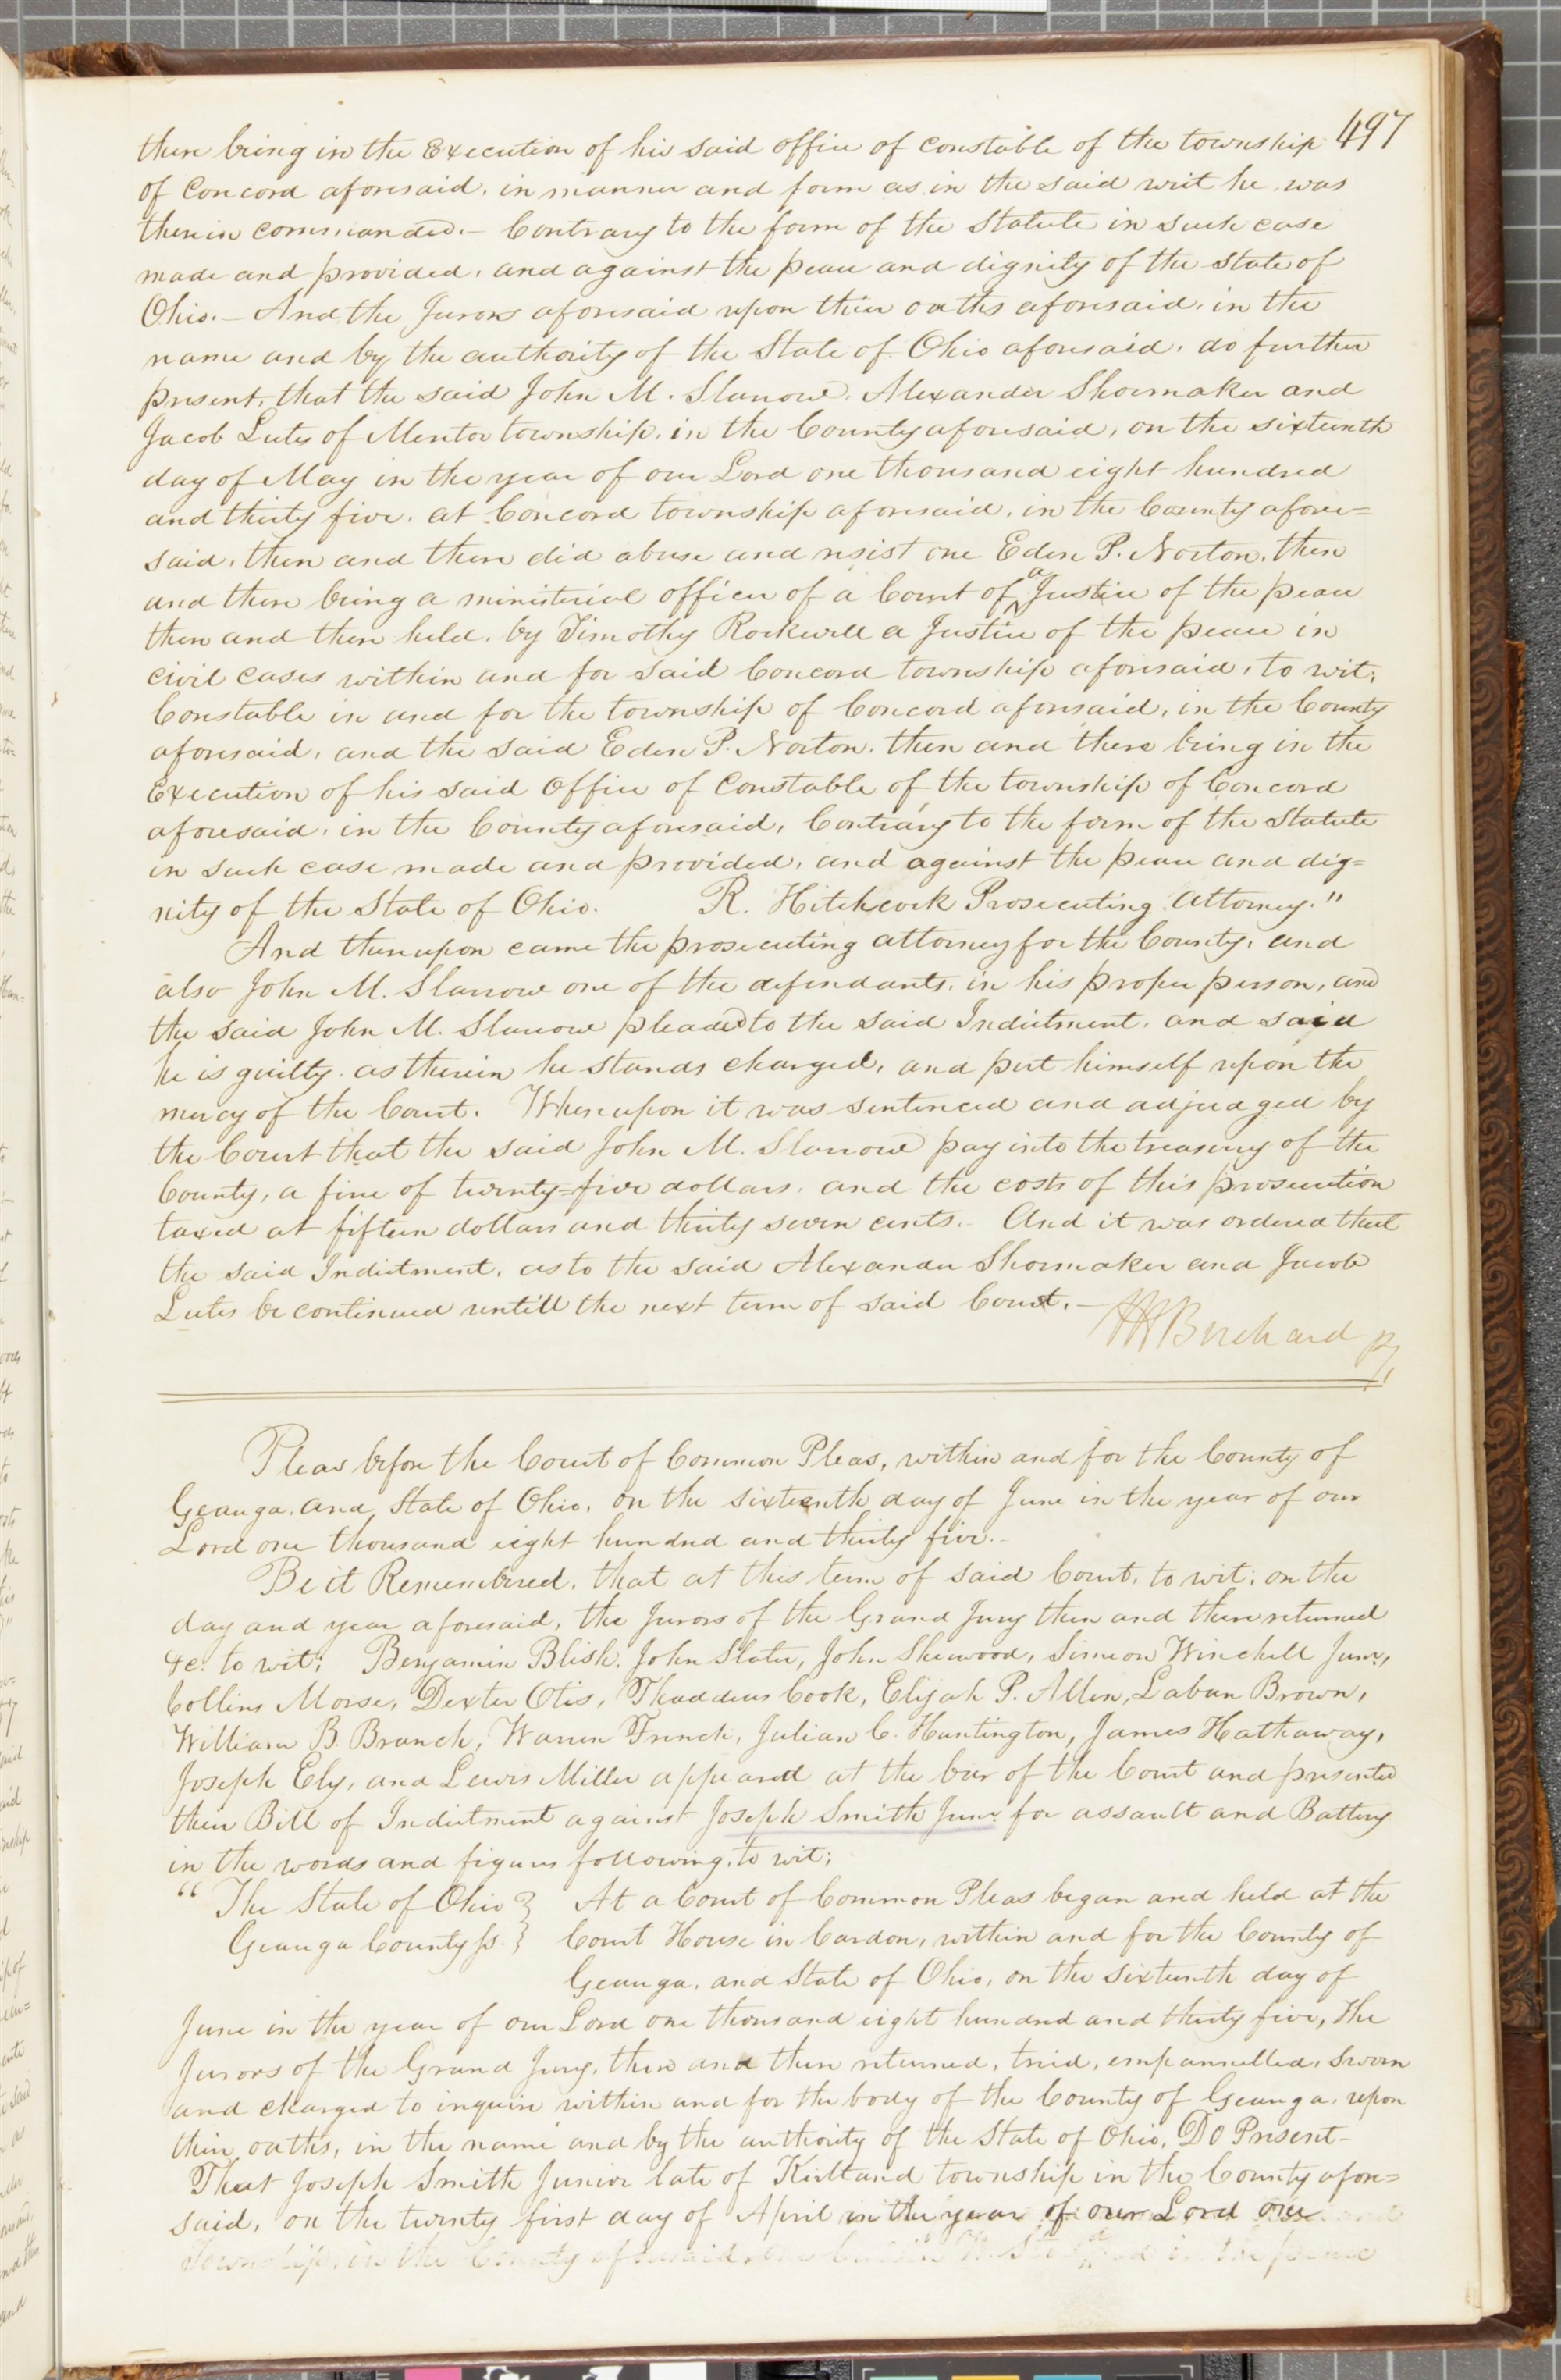 497
there being in the Execution of his said office of constable of the township
of Concord aforesaid, in manner and form as in the said writ he was
therein commanded.- Contrary to the form of the Statute in such case
made and provided, and against the peace and dignity of the state of
Ohio.- And the Jurors aforesaid upon their oaths aforesaid, in the
name and by the authority of the State of Ohio aforesaid, do further
present, that the said John M. Slarrow, Alexander Shoemaker and
Jacob Lutes of Mentor township, in the County aforesaid, on the sixteenth
day of May in the year of our Lord one thousand eight hundred
and thirty five, at Concord township aforesaid, in the County afore=
said, then and there did abuse and resist one Eden P. Norton, then
and there being a ministerial officer of a Court of a Justice of the peace
then and there held, by Timothy Rockwell a Justice of the peace in
civil cases within and for said Concord township aforesaid, to wit,
Constable in and for the township of Concord aforesaid, in the County
aforesaid, and the said Eden P. Norton, then and there being in the
Execution of his said Office of Constable of the township of Concord
aforesaid, in the County aforesaid, Contrary to the form of the Statute
in such case made and provided, and against the peace and dig=
nity of the State of Ohio. R. Hitchcock Prosecuting Attorney."
And thereupon came the prosecuting attorney for the County, and
also John M. Slarrow one of the defendants, in his proper person, and
the said John M. Slarrow pleaded to the said Indictment, and said
he is guilty as therein he stands charged, and put himself upon the
mercy of the Court. Whereupon it was sentenced and adjudged by
the Court that the said John M. Slarrow pay into the treasury of the
County, a fine of twenty=five dollars, and the costs of this prosecution
taxed at fifteen dollars and thirty seven cents.- And it was ordered that
the said Indictment, as to the said Alexander Shoemaker and Jacob
Lutes be continued untill the next term of said Court.-
Birchard
Pleas before the Court of Common Pleas, within and for the County of
Geauga, and State of Ohio, on the sixteenth day of June in the year of our
Lord one thousand eight hundred and thirty five.-
Be it Remembered, that at this term of said Court, to wit; on the
day and year aforesaid, the Jurors of the Grand Jury then and there returned
&c. to wit; Benjamin Blish, John Slater, John Sherwood, Simeon Winchell Junr,
Collins Morse, Dexter Otis, Thaddeus Cook, Elijah P. Allen, Laban Brown,
William B. Branch, Warren French, Julian C. Huntington, James Hathaway,
Joseph Ely, and Lewis Miller appeared at the bar of the Court and presented
their Bill of Indictment against Joseph Smith Junr. for assault and Battery
in the words and figures following, to wit;
"The State of Ohio } At a Court of Common Pleas began and held at the
Geauga County ss. } Court House in Cardon, within and for the County of
Geauga, and State of Ohio, on the sixteenth day of
June in the year of our Lord one thousand eight hundred and thirty five, the
Jurors of the Grand Jury, then and there returned, tried, empannelled, sworn
and charged to inquire within and for the body of the County of Geauga, upon
their oaths, in the name and by the authority of the State of Ohio, Do Present-
That Joseph Smith Junior late of Kirtland township in the County afore=
said, on the twenty first day of April in the year of our Lord one
Township, in the County aforesaid, in the peace